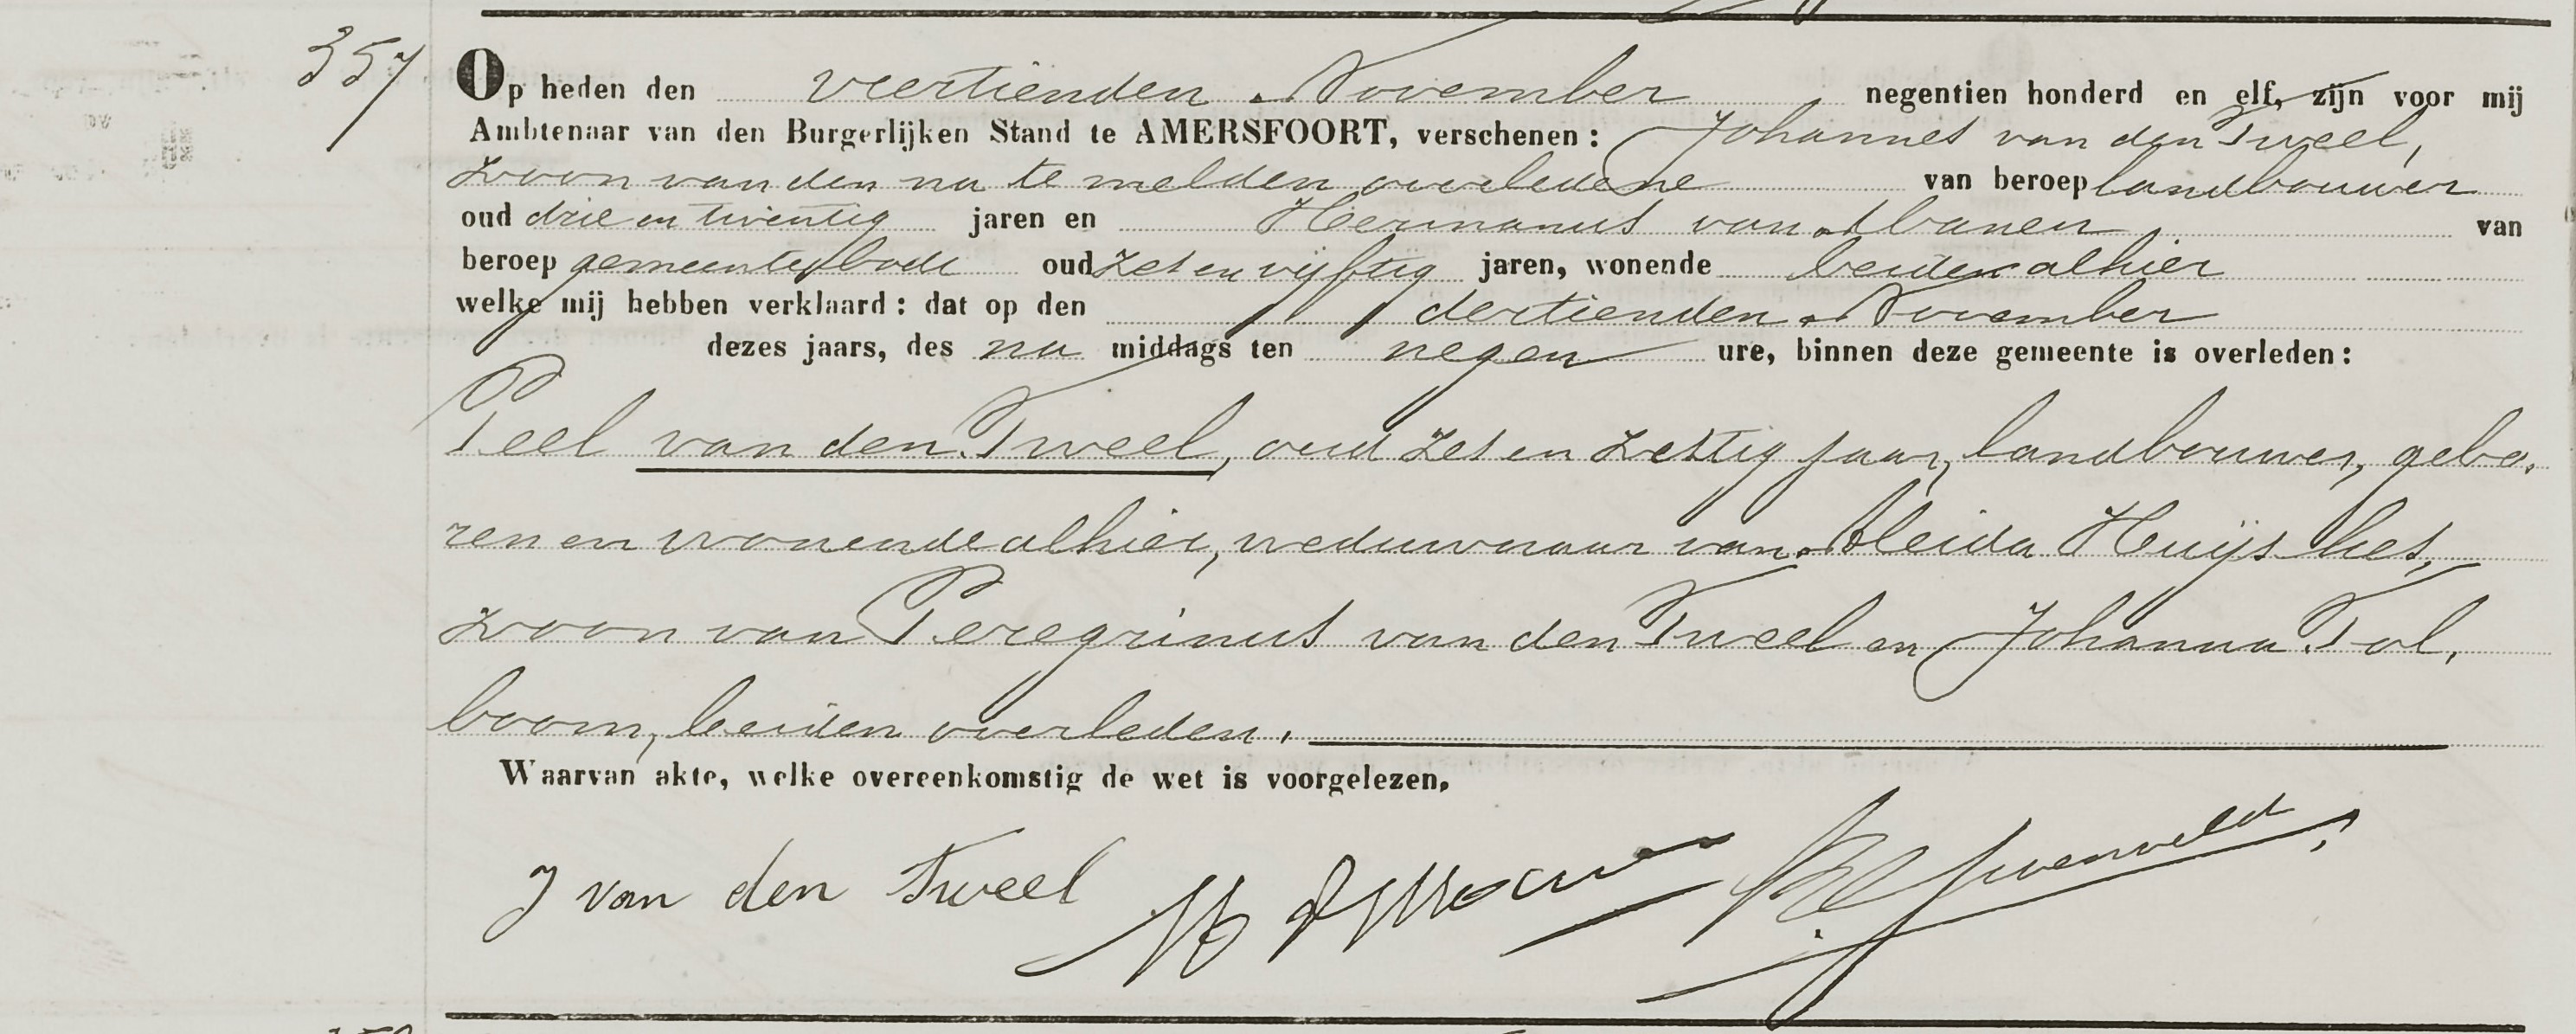 357
Op heden den veertienden November negentien honderd en elf, zijn voor mij
Ambtenaar van den Burgerlijken Stand te AMERSFOORT, verschenen: Johannes van den Tweel,
zoon van den na te melden overledene van beroep landbouwer
oud drie en twintig jaren en Hermanus van van
beroep gemeentebode oud zes en vijftig jaren, wonende beiden alhier
welke mij hebben verklaard: dat op den dertienden November
dezes jaars, des na middags ten negen ure, binnen deze gemeente is overleden:
Peel van den Tweel, oud zes en zestig jaar, landbouwer, gebo-
ren en wonende alhier, weduwnaar van Aleida Huijskes,
zoon van Peregrinus van den Tweel en Johanna Tol-
boom, beiden overleden.
Waarvan akte, welke overeenkomstig de wet is voorgelezen.
J van den Tweel